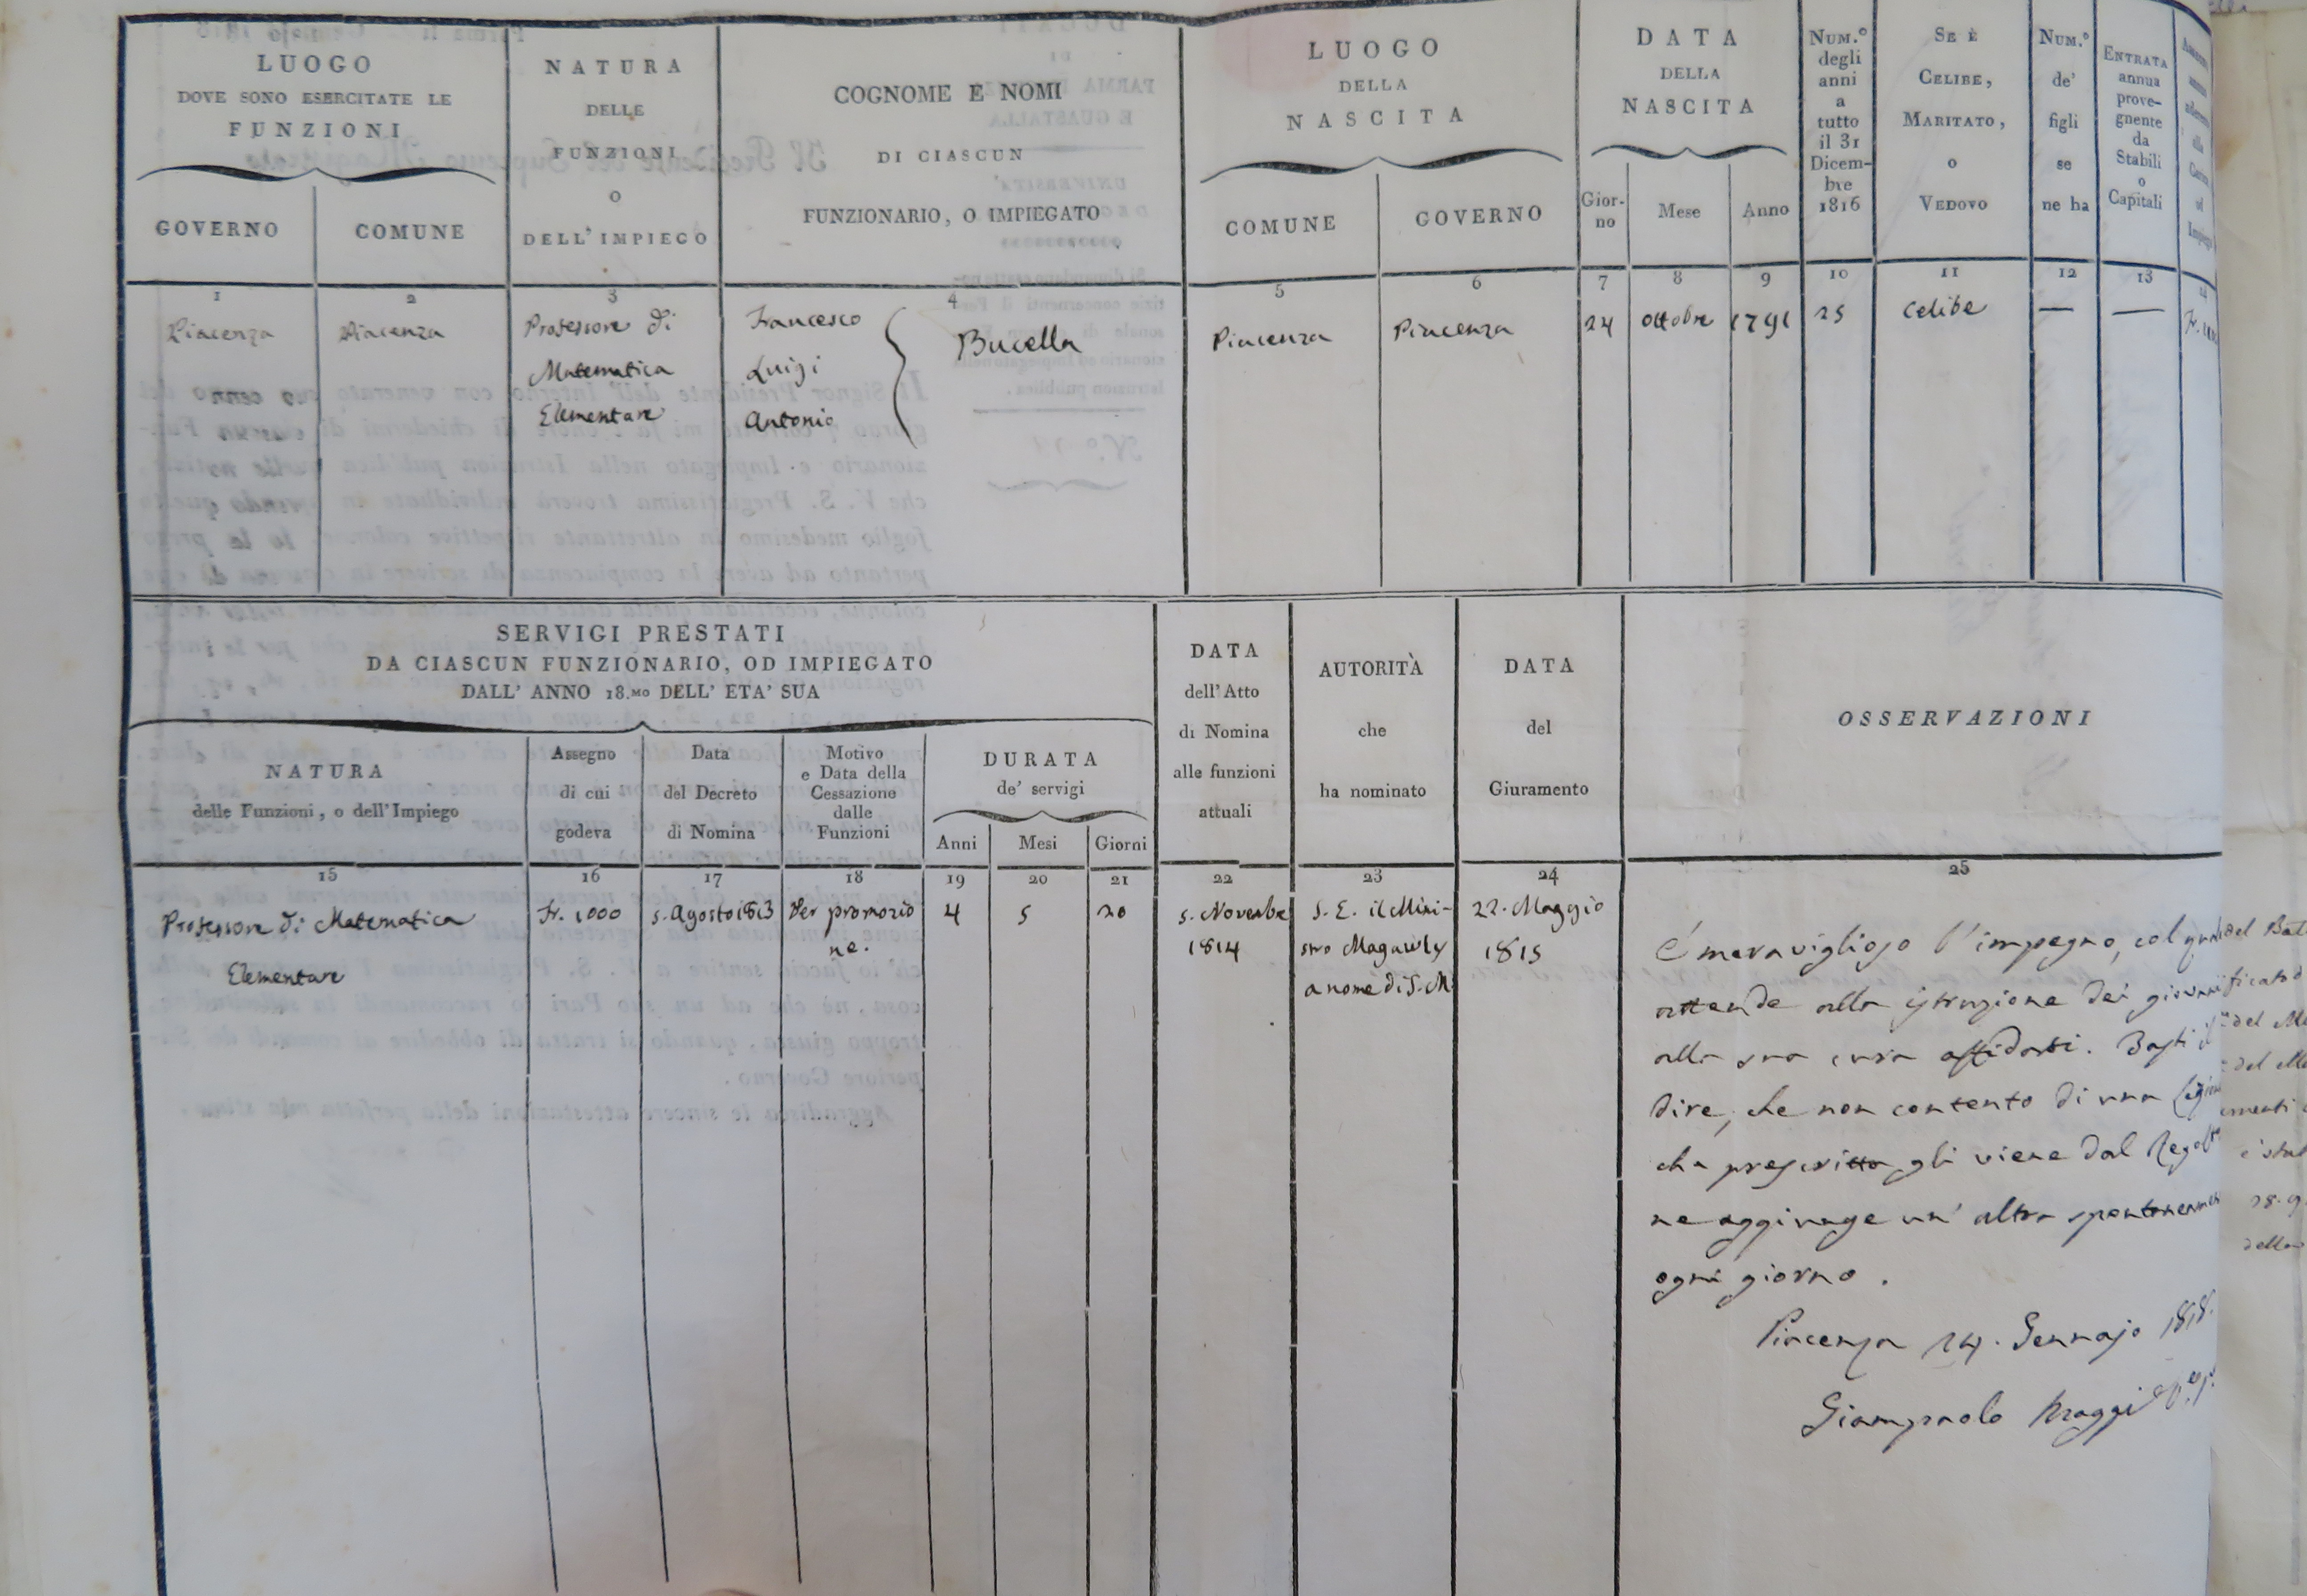 LUOGO
DOVE SONO ESERCITATE LE
FUNZIONI
GOVERNO
COMUNE
NATURA
DELLE
FUNZIONI
O
DELL'IMPIEGO
COGNOME E NOMI
DI CIASCUN
FUNZIONARIO, O IMPIEGATO
LUOGO
DELLA
NASCITA
COMUNE
GOVERNO
DATA
DELLA
NASCITA
Gior-
no
Mese
Anno
NUM.º
degli
anni
a
tutto
il 31
Dicem-
bre
1816
SE È
CELIBE,
MARITATO,
O
VEDOVO
NUM.º
de'
figli
se
ne ha
ENTRATA
annua
prove-
gnente
da
Stabili
o
Capitali
1
2
3
4
5
6
7
8
9
10
11
12
13
14
Piacenza
Piacenza
Professore di
Matematica
Elementare
Francesco
Luigi
Antonio
Bucella
Piacenza
Piacenza
24
Ottobre
1791
25
Celibe
—
—
SERVIGI PRESTATI
DA CIASCUN FUNZIONARIO, OD IMPIEGATO
DALL' ANNO 18.MO DELL' ETA' SUA
NATURA
delle Funzioni, o dell'Impiego
Assegno
di cui
godeva
Data
del Decreto
di Nomina
Motivo
e Data della
Cessazione
dalle
Funzioni
DURATA
de' servigi
Anni
Mesi
Giorni
DATA
dell'Atto
di Nomina
alle funzioni
attuali
AUTORITÀ
che
ha nominato
DATA
del
Giuramento
OSSERVAZIONI
15
16
17
18
19
20
21
22
23
24
25
Professore di Matematica
Elementare
Fr. 1000
5. Agosto 1813
Per promozio
ne.
4
5
20
5. Novembre
1814
S. E. il Mini-
stro Magawly
a nome di S. M.
22. Maggio
1815
È meraviglioso l'impegno, col
attende alla istruzione dei giovani
alla sua cura affidati. Basti il
dire, che non contento di una
che prescritta gli viene dal
ne aggiunge un' altra
ogni giorno.
Piacenza 24. Gennajo 1818.
Giampaolo Maggi